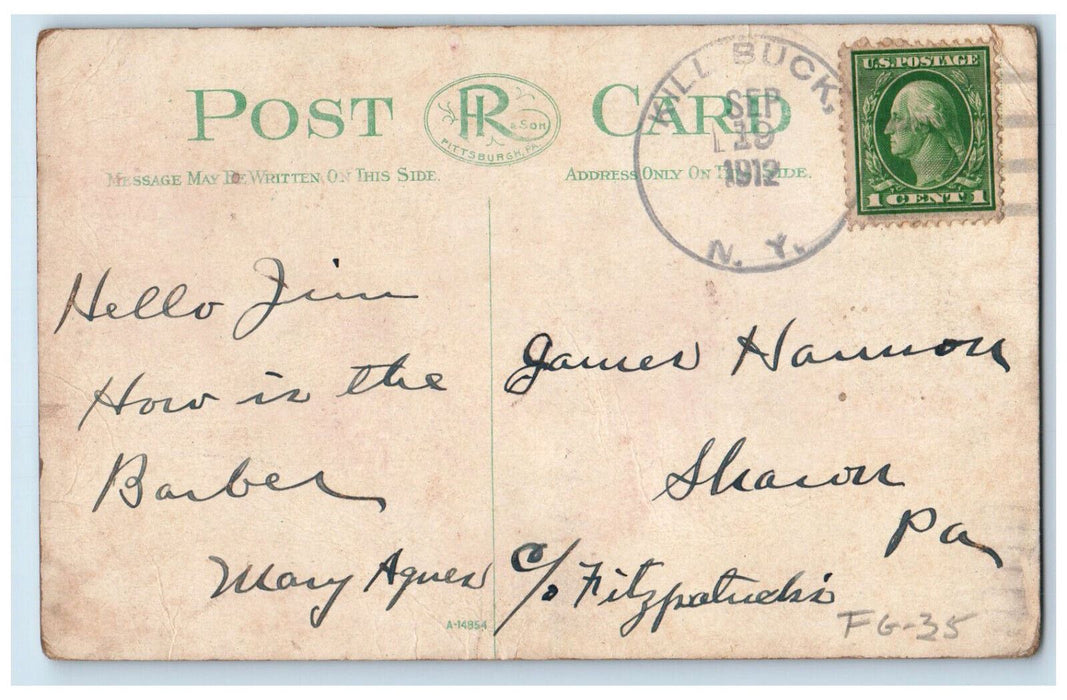 POST CARD
PR & SON
PITTSBURGH, PA.
MESSAGE MAY BE WRITTEN ON THIS SIDE.
ADDRESS ONLY ON THIS SIDE.
KILL BUCK,
SEP
19
1912
N. Y.
U.S. POSTAGE
1 CENT 1
Hello Jim
How is the
Barber
Mary Agnes
James Hannon
Sharon
Pa
c/o Fitzpatricks
A-14854
FG-35